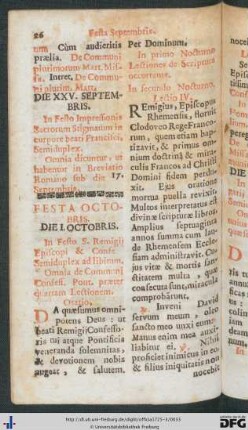 26 Festa Septembris.
um Cùm audieritis
prælia. De Communi
plurimorum Mart. Missa
fa. Intret, De Commu-
ni plurim. Mart.
DIE XXV. SEPTEM-
BRIS.
In Festo Impressionis
Sacrorum Stigmatum in
corpore beati Francisci,
Semiduplex.
Omnia dicuntur, ut
habentur in Breviario
Romano sub die 17.
Septembris.
FESTA OCTO-
BRIS.
DIE I. OCTOBRIS.
In Festo S. Remigij
Episcopi & Confes.
Semiduplex ad libitum.
Omnia de Communi
Confess. Pont. præter
quartam Lectionem.
Oratio.
DA quæsumus omni-
potens Deus, ut
beati Remigij Confesso-
ris tui atque Pontificis
veneranda solemnitas,
& devotionem nobis
augeat, & salutem.
Per Dominum.
In primo Nocturno
Lectiones de Scriptura
occurrente.
In secundo Nocturno.
Lectio IV.
REmigius, Episcopus
Rhemensis, floruit
Clodoveo Rege Franco-
rum, quem etiam bap-
tizavit, & primus om-
nium doctrinâ & mira-
culis Francos ad Christi
Domini fidem perdu-
xit. Ejus orationes
mortua puella revixit.
Multos interpretatus est
divinæ scripturæ libros.
Amplius septuaginta
annos summa cum lau-
de Rhemensem Eccle-
siam administravit. Cu-
jus vitæ & mortis san-
ctitatem multa, quæ
consecuta sunt, miracula
comprobârunt.
Inveni David
servum meum, oleo
sancto meo unxi eum:
Manus enim mea auxi-
liabitur ei. Nihil
proficiet inimicus in eo,
& filius iniquitatis non
nocebit